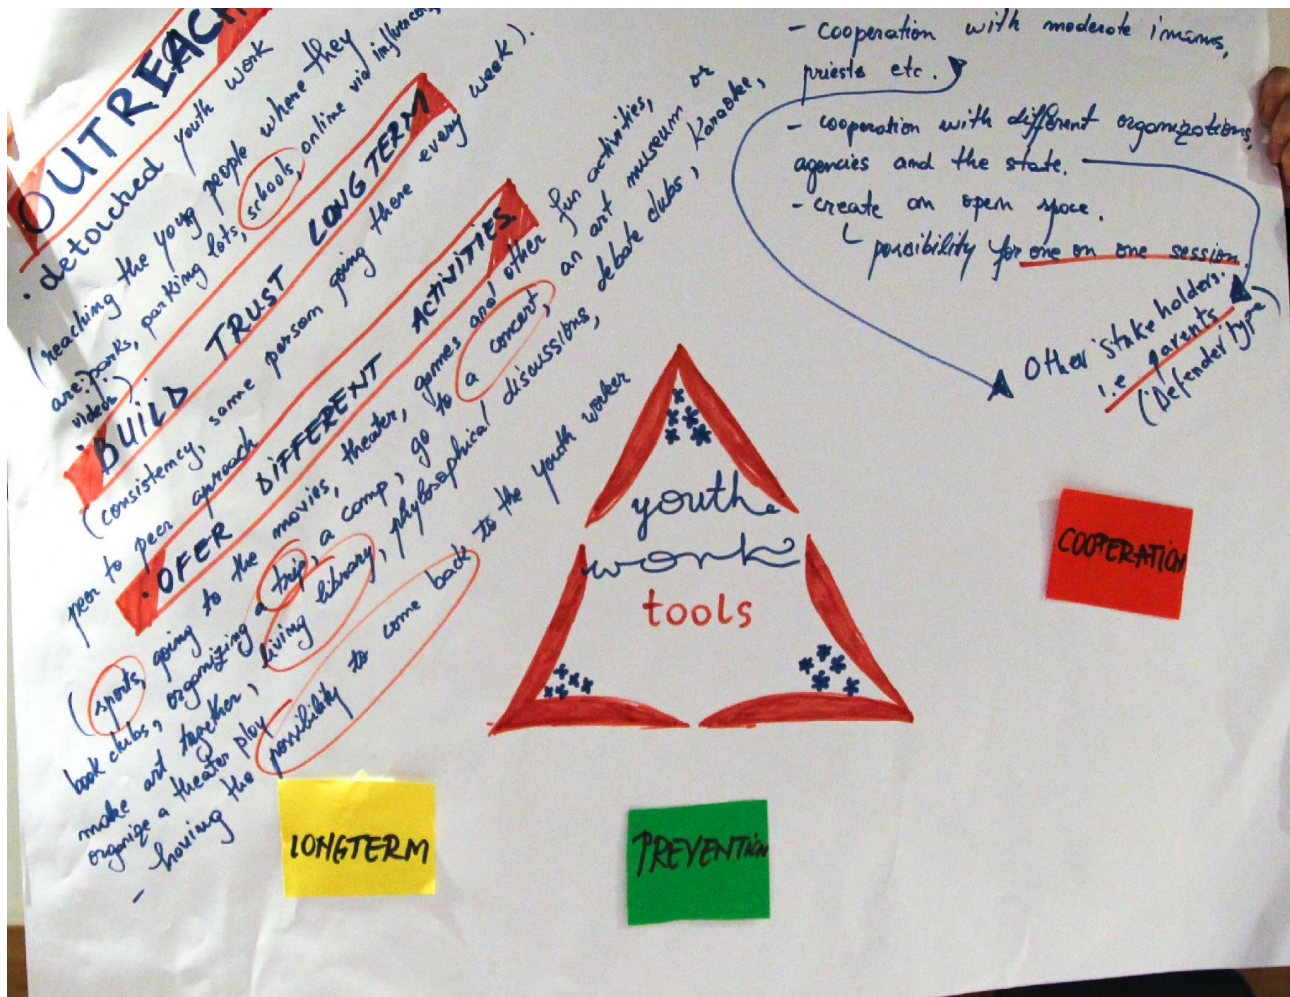 OUTREACH
· detouched youth work
(reaching the young people where they
are: parks, parking lots, schools, online via influencers
videos)
· BUILD TRUST LONG TERM
(consistency, same person going there every week).
peer to peer aproach
· OFER DIFFERENT ACTIVITIES
(sports, going to the movies, theater, games and other fun activities,
book clubs, organizing a trip, a camp, go to a concert, an art museum or
make art together, living library, phylosophical discussions, debate clubs, Karaoke,
organize a theater play
- having the possibility to come back to the youth worker
- cooperation with moderate imams,
priests etc.
- cooperation with different organizations,
agencies and the state.
- create an open space.
possibility for one on one session
Other stake holders.
i.e parents
(Defender type)
youth
work
tools
COOPERATION
LONGTERM
PREVENTION